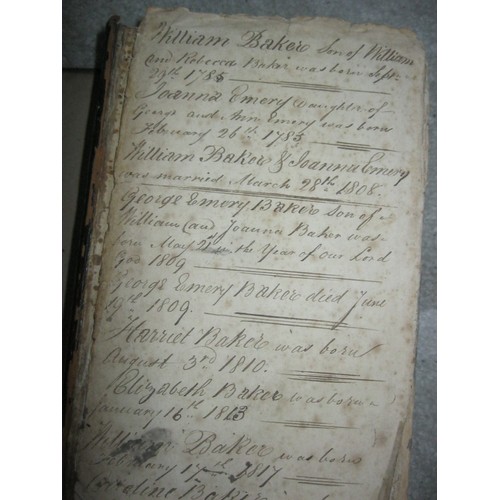 William Baker Son of William
and Rebecca Baker was born Sept.
29th 1785
Joanna Emery Daughter of
George and Ann Emery was born
February 26th 1785
William Baker & Joanna Emery
was married March 28th 1808.
George Emery Baker Son of
William and Joanna Baker was
born May 21 in the Year of our Lord
1809
George Emery Baker died June
19th 1809.
Harriet Baker was born
August 3rd 1810.
Elizabeth Baker was born
January 16th 1813
William Baker was born
February 17th 1817
Caroline Baker